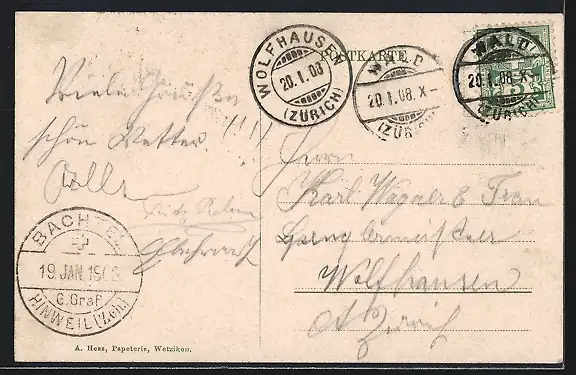 POSTKARTE.
WOLFHAUSEN
20.1.08
(ZÜRICH)
WALD
20.1.08.X-
(ZÜRICH)
WALD
20.1.08.X-
(ZÜRICH)
5
Viele Grüsse
schön Wetter !!!!
Fritz
Herrn
Karl Wagner & Frau
Wolfhausen
Ct Zürich
BACHTEL
19 JAN. 190
C. Graf
HINWEIL (Zch.)
A. Hess, Papeterie, Wetzikon.